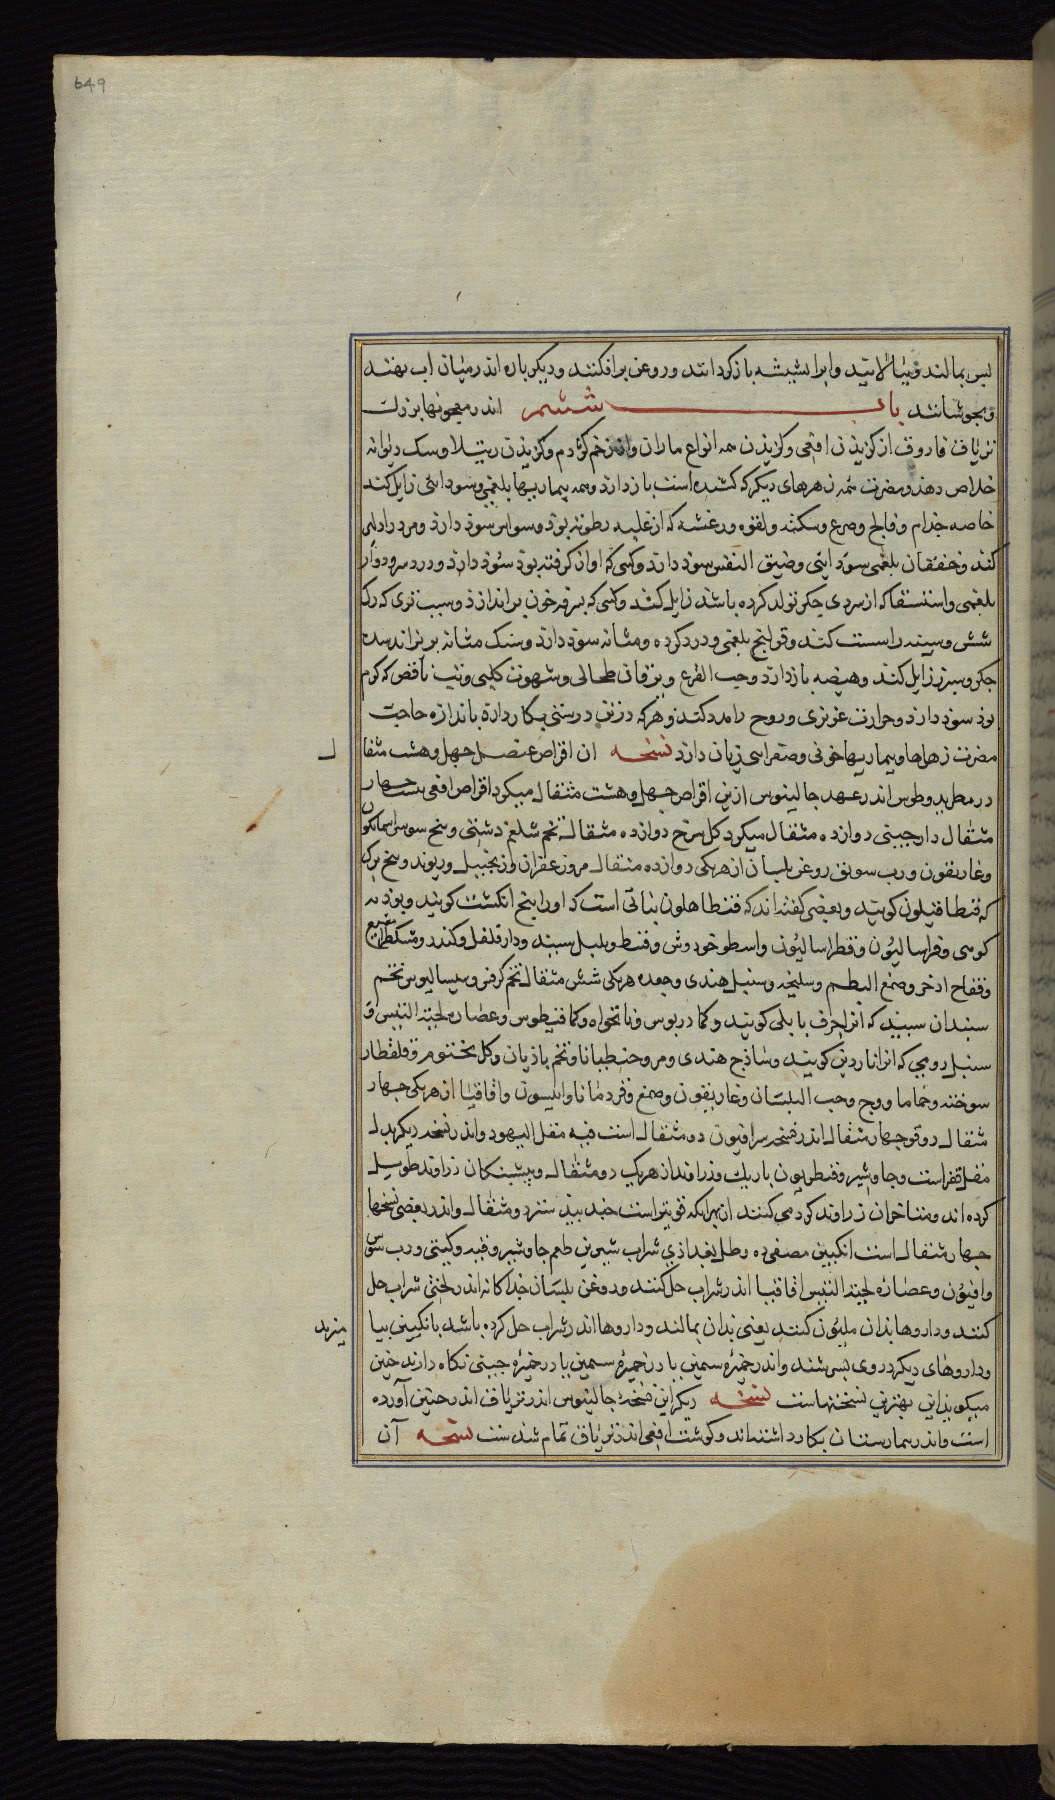 649
پس بمالند و بپالایند و ابرا بشیشه باز کردانند و روغن برافکنند و دیکر باره اندر میان اب نهند
و بجوشانند باب ششم اندر معجونها بزرک
تریاق فاروق از کزیدن افعی و کزیدن همه انواع ماران و از زخم کژدم و کزیدن رتیلا و سک دیوانه
خلاص دهد و مضرت همه زهرهای دیکر که کشنده است باز دارد و همه بیماریها بلغمی و سودایی زایل کند
خاصه جذام و فالج و صرع و سکته و لقوه و رعشه که از غلبه رطوبة بود و وسواس سود دارد و مرد را دلیر
کند و خفقان بلغمی سودایی و ضیق النفس سود دارد و کسی که اواز کرفته بود سود دارد و درد سر و دوار
بلغمی و استسقا که از سردی جکر تولد کرده باشد زایل کند و کسی که بزفر خون براندازد و سبب تری که رک
شش و سینه را سست کند و قولنج بلغمی و درد کرده و مثانه سود دارد و سنک مثانه بریزاند سده
جکر و سپرز زایل کند و هیضه باز دارد و حب القرع و یرقان طحالی و شهوت کلبی و تب ناقض که کرم
بود سود دارد و حرارت غریزی و روح را مدد کند و هر که در تن درستی بکار دارد باندازه حاجت
مضرت زهرها و بیماریها خونی و صفرایی زیان دارد نسخه ان اقراص عنصل چهل و هشت مثقا
ل
در مطریدوطوس اندر عهد جالینوس ازین اقراص چهل و هشت مثقال میکرد اقراص افعی بیست چهار
مثقال دارچینی دوازده مثقال میکرد کل سرخ دوازده مثقال تخم شلغم دشتی و بیخ سوس اسمانکون
و غاریقون و رب سوس و روغن بلسان از هریکی دوازده مثقال مر و زعفران و زنجبیل و ریوند و بیخ برک
که قنطافیلون کویند و بعضی کفته اند که قنطاهلون نباتی است که او را پنج انکشت کویند و پودنه
کوهی و فراسالیون و فطراسالیون و اسطوخودوش و قسط و پلپل سپید و دارفلفل و کندر و مشکطرامشیع
و فقاح اذخر و صمغ البطم و سلیخه و سنبل هندی و جعده هریکی شش مثقال تخم کرفس و سیسالیوس تخم
سبندان سپید که انرا حرف بابلی کویند و کمادریوس و نانخواه و کمافیطوس و عصاره لحیة التیس و
سنبل رومی که انرا ناردین کویند و ساذج هندی و مر و جنطیانا و تخم بادیان و کل مختوم و قلقطار
سوخته و حماما و وج و حب البلسان و غاریقون و صمغ و قردمانا و انیسون و اقاقیا از هریکی چهار
مثقال دوقو چهار مثقال اندر نسخه سرافیون دو مثقال است قنه مقل الیهود و اندر نسخه دیکر بدل
مقل قفر است و جاوشیر و قنطریون باریک و زراوند از هریک دو مثقال و پیشینکان زراوند طویل
کرده اند و متاخران زراوند کرد می کنند از بهر انکه قویتر است جند بیدستر دو مثقال و اندر بعضی نسخها
چهار مثقال است انکبین مصفی ده رطل بغدادی شراب شیرین طعم جاوشیر و قنه و کیتی و رب سوس
و افیون و عصاره لحیة التیس اقاقیا اندر شراب حل کنند و روغن بلسان جداکانه اندر لختی شراب حل
کنند و داروها بذان ملیون کنند یعنی بذان بمالند و داروها اندر شراب حل کرده باشد بانکبین بیا
میزند
و داروهای دیکر در وی بسرشند و اندر خمیره سیمین یا در خمیره چینی نکاه دارند چنین
میکویند این بهترین نسختهاست نسخه دیکر این نسخه جالینوس اندر تریاق اندر حنین آورده
است و اندر بیمارستان بکار داشته اند و کوشت افعی اندر تریاق تمام شده ست نسخه آن